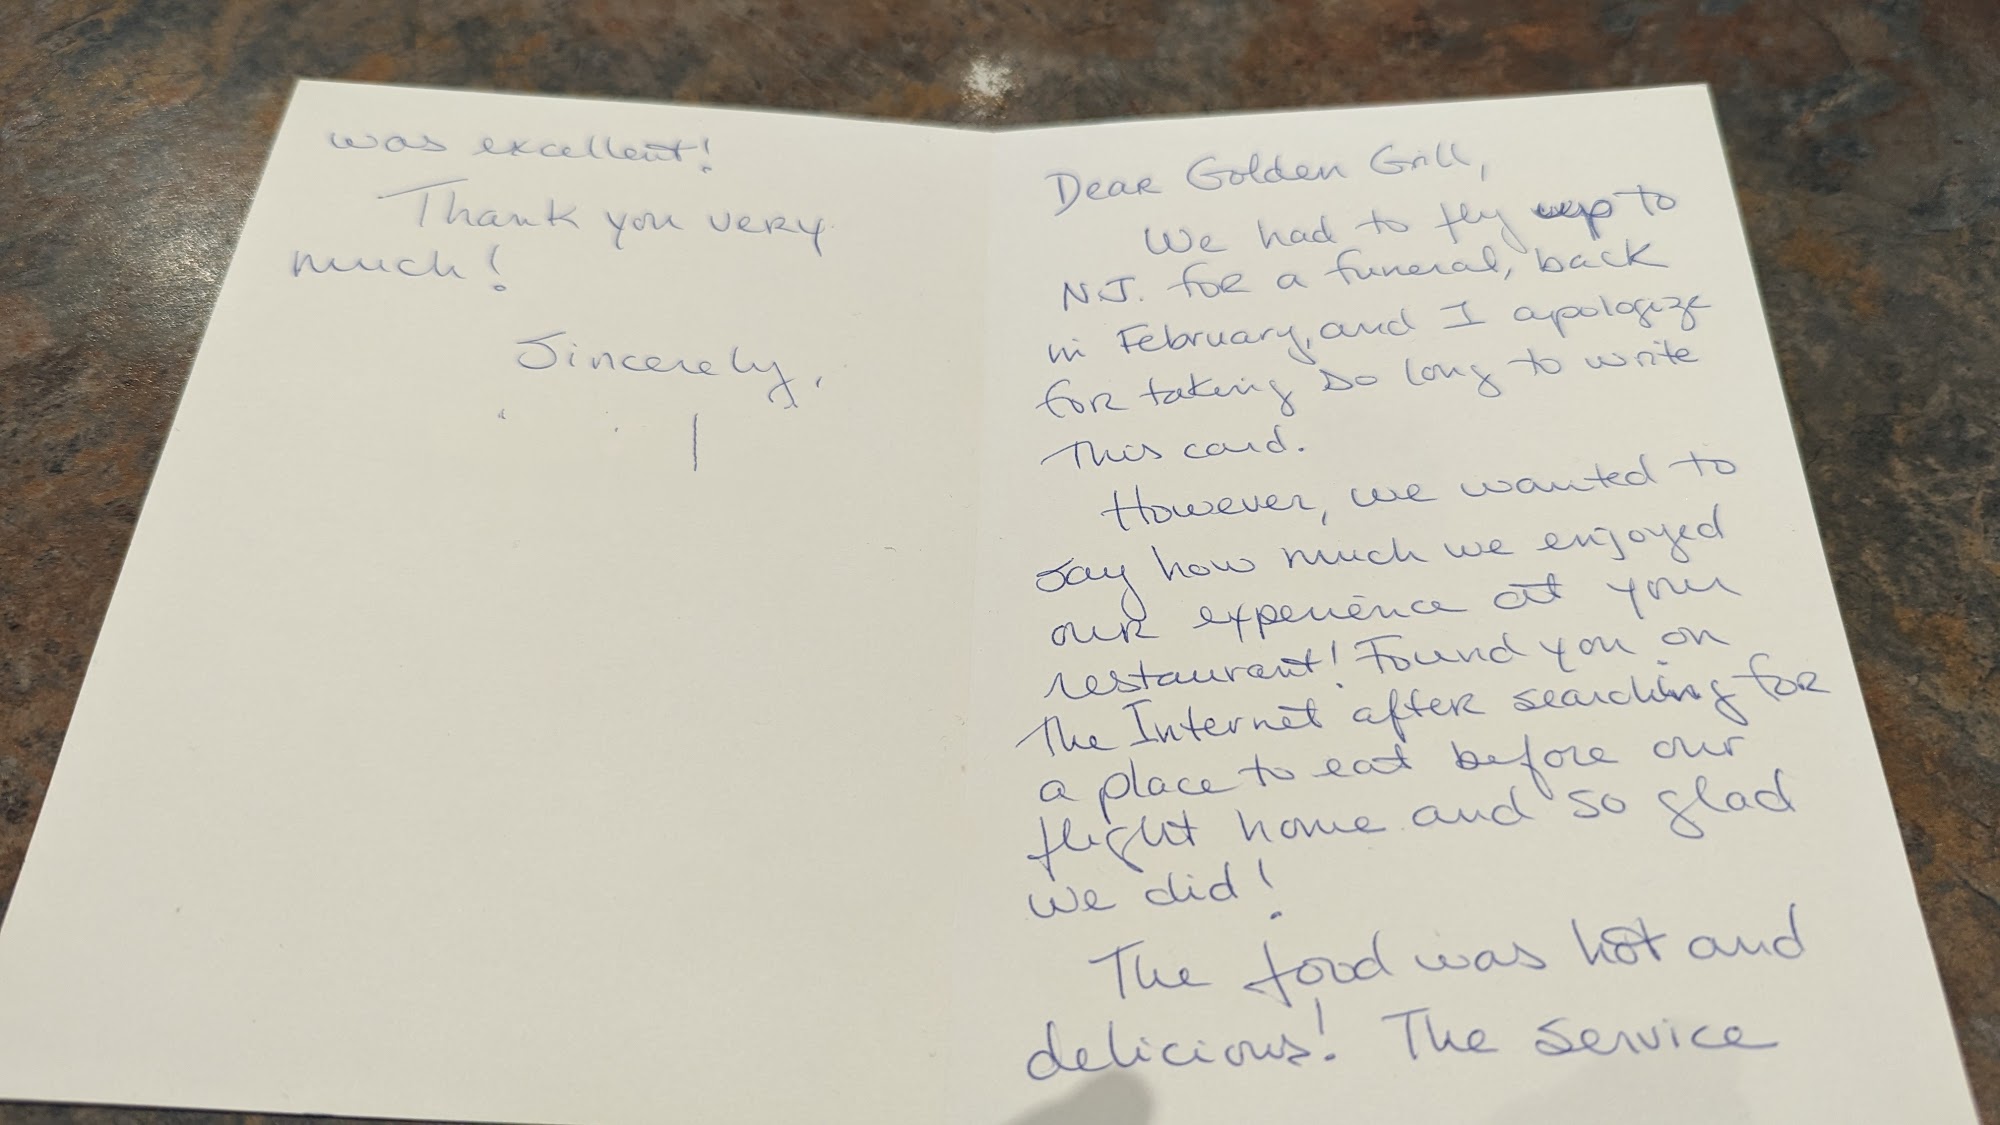 Dear Golden Grill,
We had to fly up to
N.J. for a funeral, back
in February, and I apologize
for taking so long to write
this card.
However, we wanted to
say how much we enjoyed
our experience at your
restaurant! Found you on
the Internet after searching for
a place to eat before our
flight home and so glad
we did!
The food was hot and
delicious! The service
was excellent!
Thank you very
much!
Sincerely,